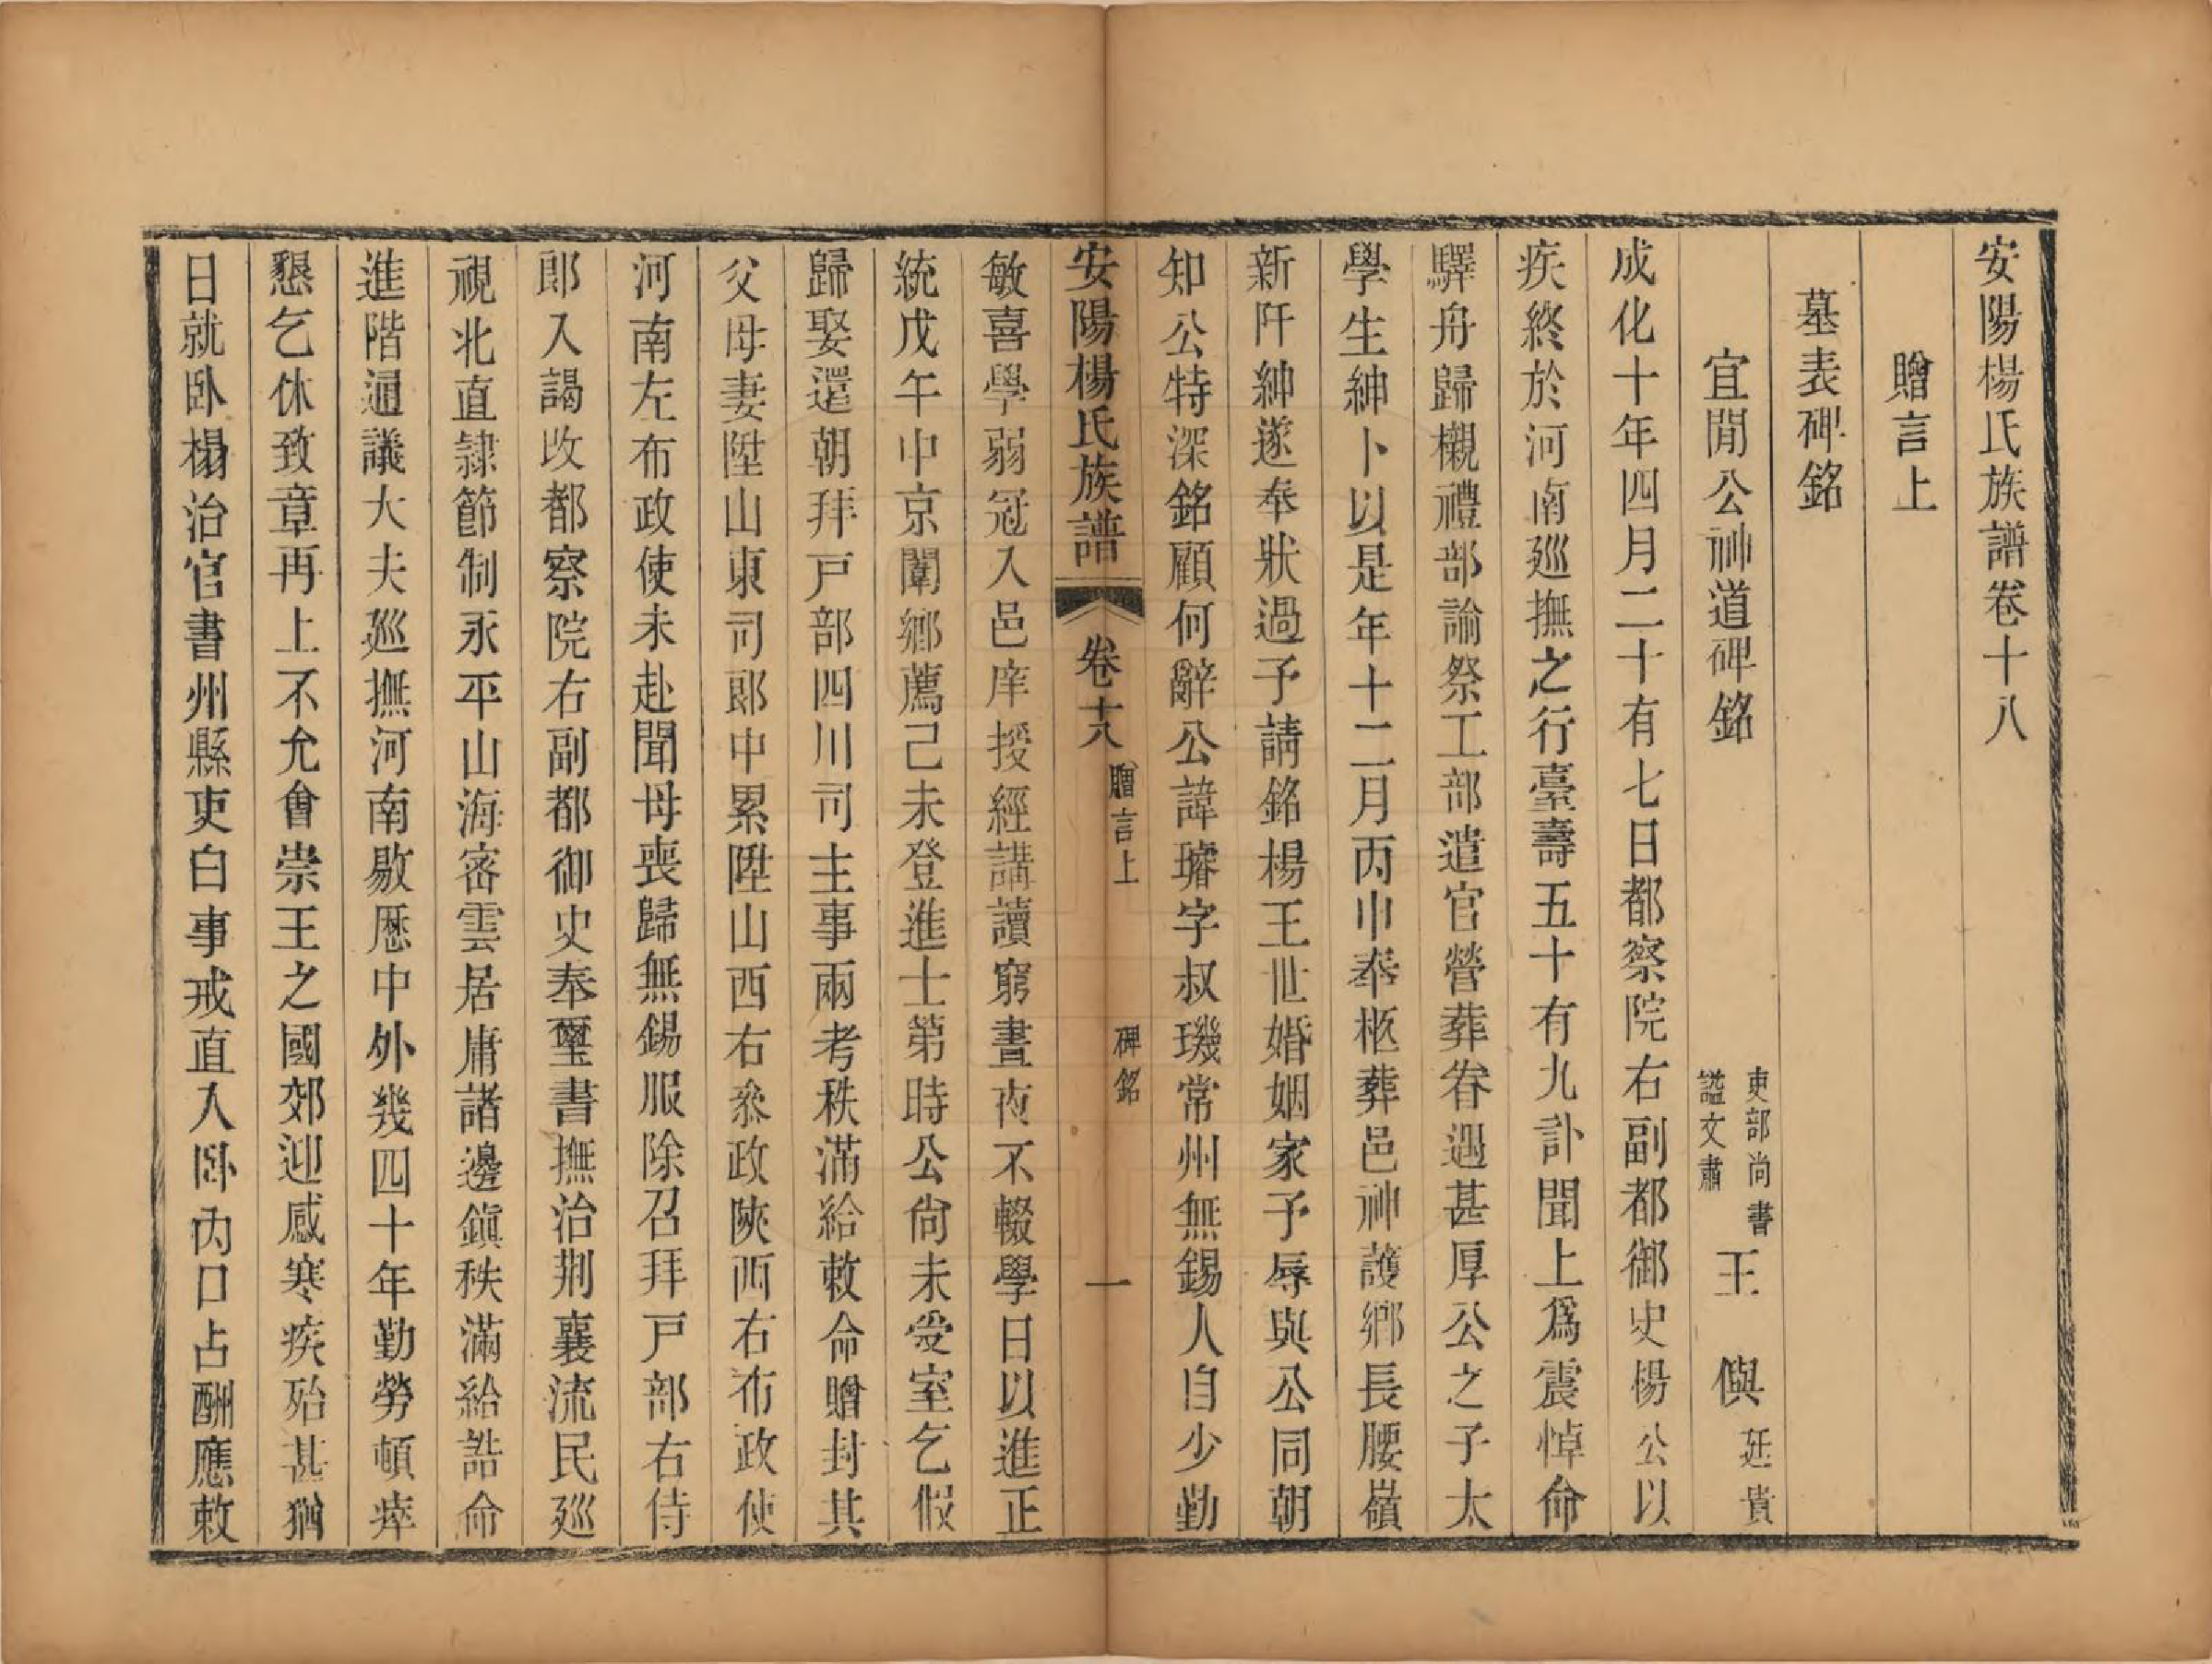 安陽楊氏族譜卷十八
贈言上
墓表碑銘
宜閒公神道碑銘 吏部尚書謚文肅 王㒜 廷貴
成化十年四月二十有七日都察院右副都御史楊公以
疾終於河南廵撫之行臺壽五十有九訃聞上爲震悼命
驛舟歸櫬禮部諭祭工部遣官營葬眷遇甚厚公之子太
學生紳卜以是年十二月丙申奉柩葬邑神護鄉長腰嶺
新阡紳遂奉狀過予請銘楊王世婚姻家予辱與公同朝
知公特深銘顧何辭公諱璿字叔璣常州無錫人自少勤
安陽楊氏族譜 卷十八 贈言上 碑銘 一
敏喜學弱冠入邑庠授經講讀窮晝夜不輟學日以進正
統戊午中京闈鄉薦己未登進士第時公尙未受室乞假
歸娶還朝拜戸部四川司主事兩考秩滿給敕命贈封其
父母妻陞山東司郎中累陞山西右叅政陜西右布政使
河南左布政使未赴聞母喪歸無錫服除召拜戸部右侍
郎入謁改都察院右副都御史奉璽書撫治荆襄流民廵
視北直隸節制永平山海密雲居庸諸邊鎭秩滿給誥命
進階通議大夫廵撫河南敭歷中外幾四十年勤勞頓瘁
懇乞休致章再上不允會崇王之國郊迎感寒疾殆甚猶
日就卧榻治官書州縣吏白事戒直入卧內口占酬應敕